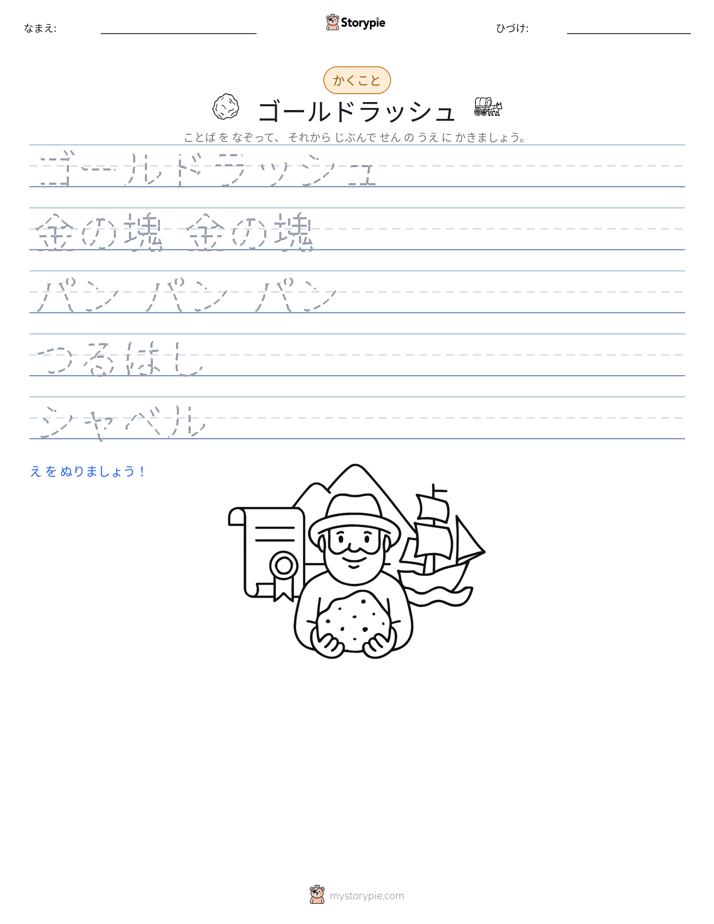 なまえ:
Storypie
ひづけ:
かくこと
ゴールドラッシュ
ことば を なぞって、 それから じぶんで せん の うえ に かきましょう。
ゴールドラッシュ
金の塊 金の塊
パン パン パン
つるはし
シャベル
え を ぬりましょう！
mystorypie.com